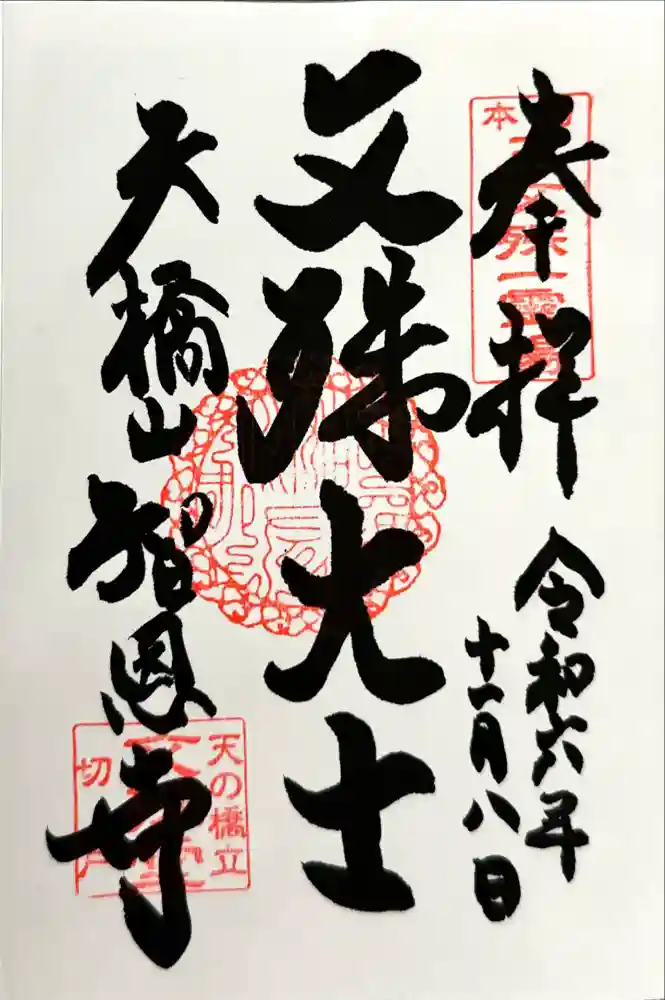 奉拝
令和六年
十一月八日
文殊大士
天橋山智恩寺
天の橋立
切戸